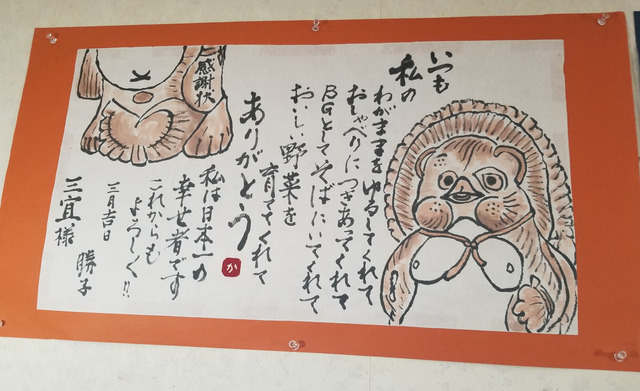 いつも
私の
わがままをゆるしてくれて
おしゃべりにつきあってくれて
BGとしてそばにいてくれて
おいしい野菜を
育ててくれて
ありがとう
か
私は日本一の
幸せ者です
これからも
よろしく!!
三月吉日
勝子
三宜様
感謝状